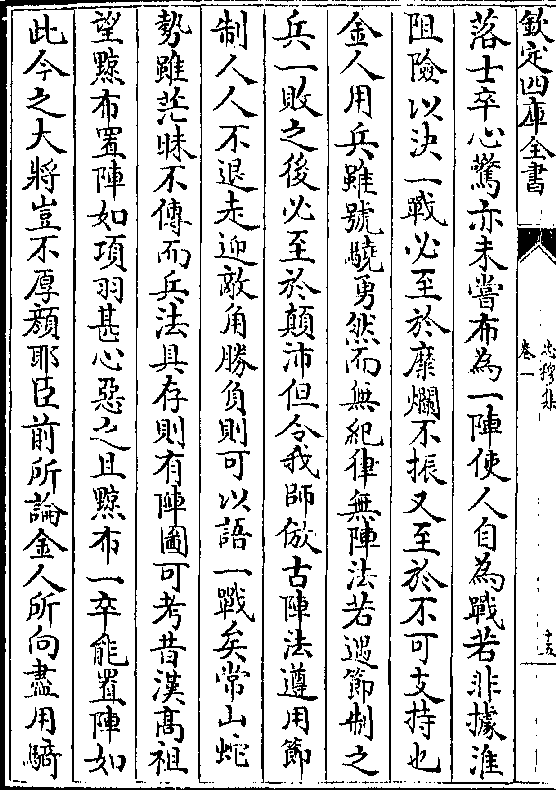 欽定四庫全書
忠穆集
卷一
十五
落士卒心驚亦未嘗布為一陣使人自為戰若非據淮
阻險以決一戰必至於靡爛不振又至於不可支持也
金人用兵雖號驍勇然而無紀律無陣法若遇節制之
兵一敗之後必至於顛沛但令我師倣古陣法遵用節
制人人不退走迎敵角勝負則可以語一戰矣常山蛇
勢雖茫昧不傳而兵法具存則有陣圖可考昔漢髙祖
望黥布置陣如項羽甚心惡之且黥布一卒能置陣如
此今之大將豈不厚顔耶臣前所論金人所向盡用騎